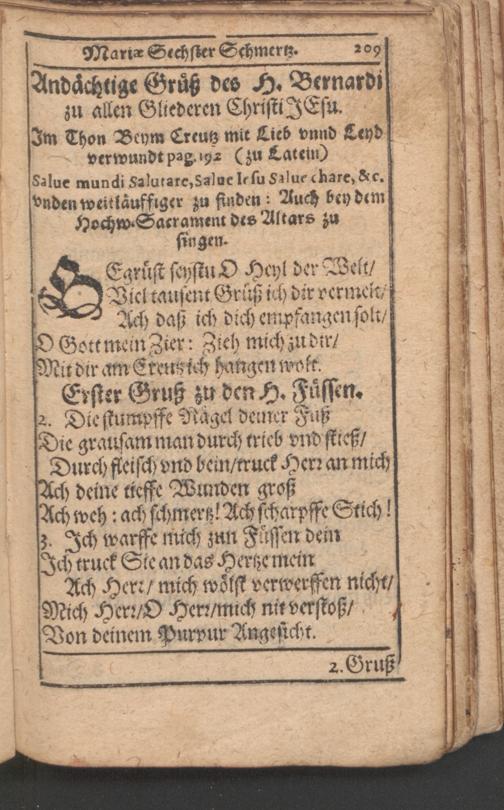 Mariæ Sechster Schmertz. 209
Andächtige Grüß des H. Bernardi
zu allen Gliederen Christi JEsu.
Im Thon Beym Creutz mit Lieb vnnd Leyd
verwundt pag. 192 (zu Latein)
Salue mundi Salutare, Salue Iesu Salue chare, &c.
vnden weitläuffiger zu finden: Auch bey dem
Hochw. Sacrament des Altars zu
singen.
BEgrüst seystu O Heyl der Welt/
Viel tausent Grüß ich dir vermelt/
Ach daß ich dich empfangen solt/
O Gott mein Zier: Zieh mich zu dir/
Mit dir am Creutz ich hangen wolt.
Erster Gruß zu den H. Füssen.
2. Die stumpffe Nägel deiner Füß
Die grausam man durch trieb vnd stieß/
Durch fleisch vnd bein/truck Herr an mich
Ach deine tieffe Wunden groß
Ach weh: ach schmertz! Ach scharpffe Stich!
3. Ich warffe mich zun Füssen dein
Ich truck Sie an das Hertze mein
Ach Herr/ mich wölst verwerffen nicht/
Mich Herr/O Herr/mich nit verstoß/
Von deinem Purpur Angesicht.
2. Gruß